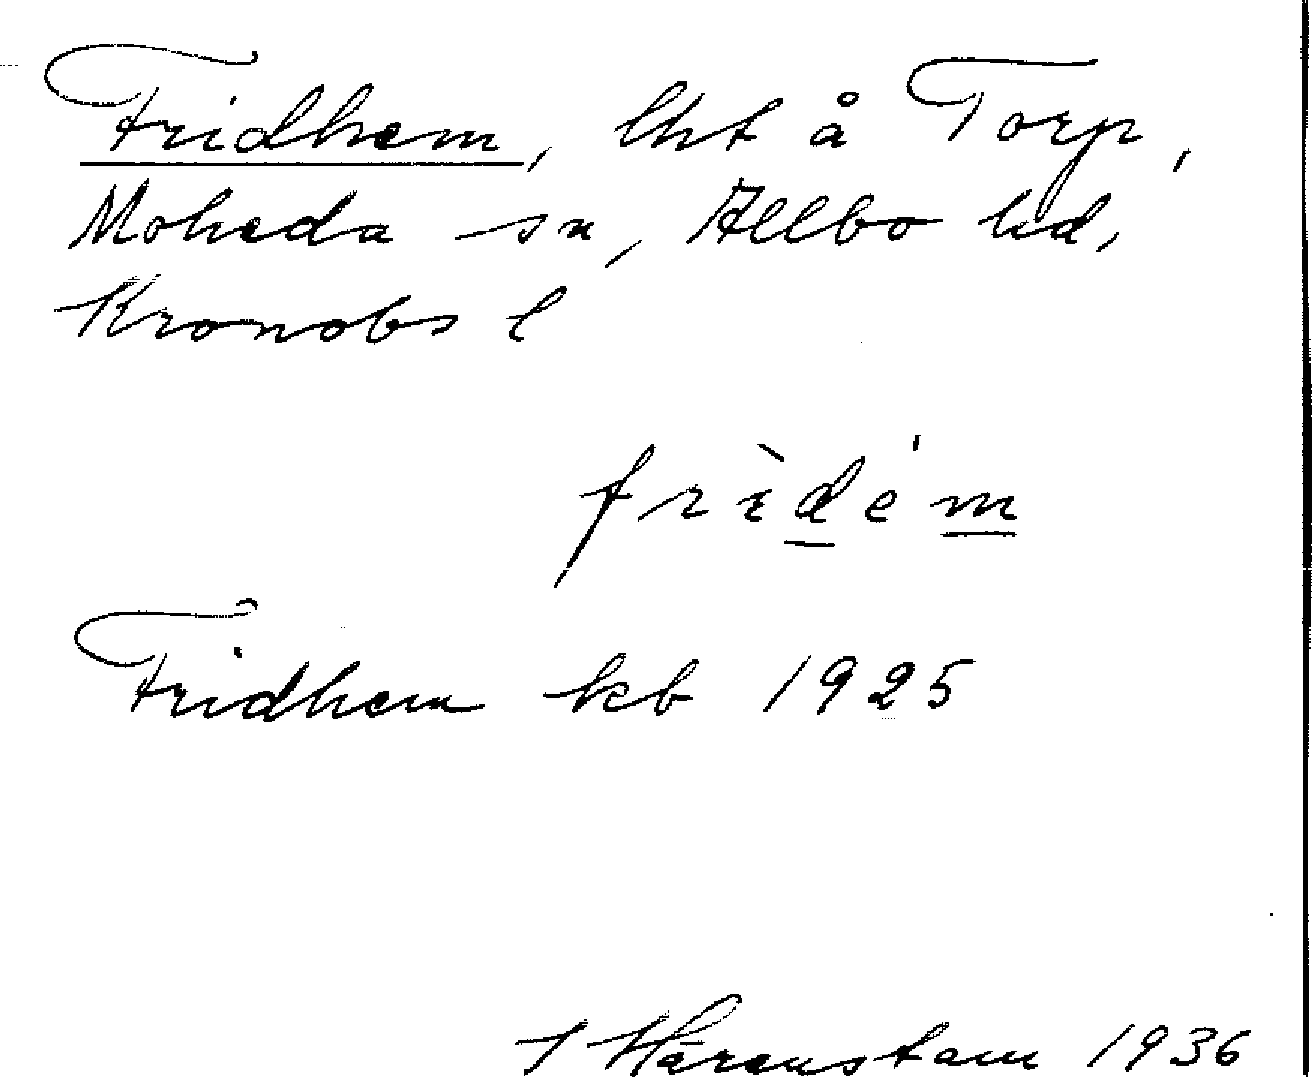 Fridhem, lht å Torp,
Moheda sn, Allbo hd,
Kronobs l
frìdém
Fridhem kb 1925
Härenstam 1936